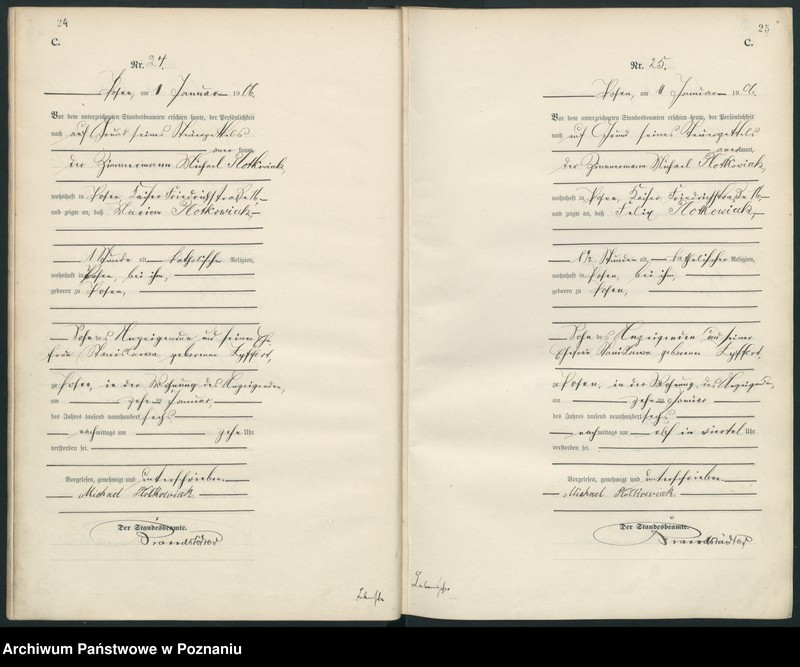 24
C.
Nr. 24.
Posen, am 11 Januar 1906.
Vor dem unterzeichneten Standesbeamten erschien heute, der Persönlichkeit
nach auf Grund seines Steuerzettels
aner kannt,
der Zimmermann Michael Klotkowiak,
wohnhaft in Posen, Kaiser Friedrichstraße
und zeigte an, daß Marian Klotkowiak,
1 Stunde alt, katholischer Religion,
wohnhaft in Posen, bei ihm,
geboren zu Posen,
Sohn des Anzeigenden und seiner Ehe-
frau Stanislawa geborenen
zu Posen, in der Wohnung des Anzeigenden,
am zehn Januar
des Jahres tausend neunhundert sechs
nachmittags um zehn Uhr
verstorben sei.
Vorgelesen, genehmigt und unterschrieben.
Michael Klotkowiak
Der Standesbeamte.
Brandstädter
25
C.
Nr. 25.
Posen, am 11 Januar 1906.
Vor dem unterzeichneten Standesbeamten erschien heute, der Persönlichkeit
nach auf Grund seines Steuerzettels
aner kannt,
der Zimmermann Michael Klotkowiak,
wohnhaft in Posen, Kaiser Friedrichstraße
und zeigte an, daß Felix Klotkowiak,
Stunden alt, katholischer Religion,
wohnhaft in Posen, bei ihm,
geboren zu Posen,
Sohn des Anzeigenden und seiner
Ehefrau Stanislawa geborenen
zu Posen, in der Wohnung des Anzeigenden,
am zehn Januar
des Jahres tausend neunhundert sechs
nachmittags um elf ein viertel Uhr
verstorben sei.
Vorgelesen, genehmigt und unterschrieben.
Michael Klotkowiak
Der Standesbeamte.
Brandstädter
Archiwum Państwowe w Poznaniu